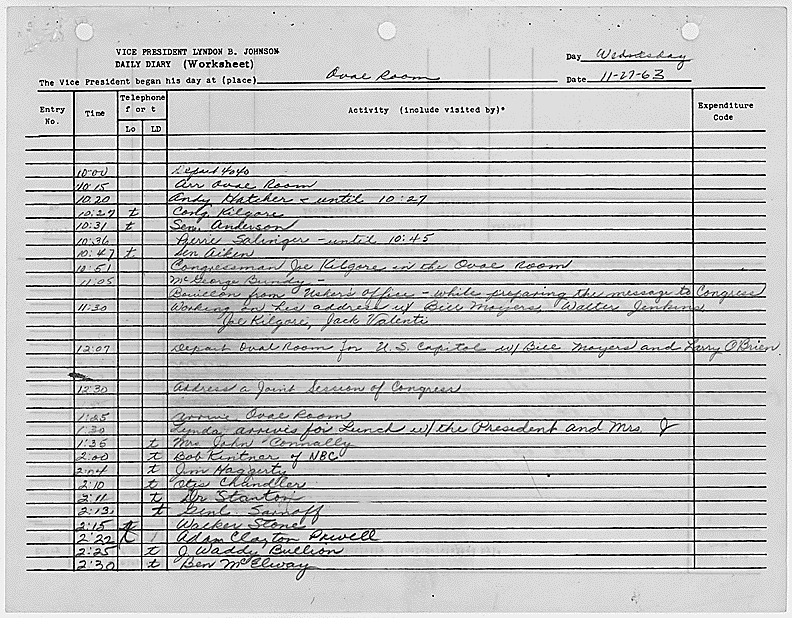 VICE PRESIDENT LYNDON B. JOHNSON
DAILY DIARY (Worksheet)
Day Wednesday
The Vice President began his day at (place) Oval Room
Date 11-27-63
Entry No. Time Telephone f or t Lo LD Activity (include visited by)* Expenditure Code
10:00 Depart 4040
10:15 Arr Oval Room
10:20 Andy Hatcher - until 10:27
10:27 t Cong Kilgore
10:31 t Sen. Anderson
10:36 Pierre Salinger - until 10:45
10:47 t Sen Aiken
10:51 Congressman Joe Kilgore in the Oval Room
11:05 McGeorge Bundy -
Bouillon from Usher's office - while preparing the message to Congress
11:30 Working on his address w/ Bill Moyers, Walter Jenkins
Joe Kilgore, Jack Valenti
12:07 Depart Oval Room for U.S. Capitol w/ Bill Moyers and Larry O'Brien
12:30 Address a Joint Session of Congress
1:25 arrive Oval Room
1:30 Lynda arrives for Lunch w/ the President and Mrs. J
1:35 t Mrs John Connally
2:00 t Bob Kintner of NBC
2:04 t Jim Haggerty
2:10 t Otis Chandler
2:11 t Dr Stanton
2:13 t Genl. Sarnoff
2:15 t Walker Stone
2:22 t Adam Clayton Powell
2:25 t J. Waddy Bullion
2:30 t Ben McElway